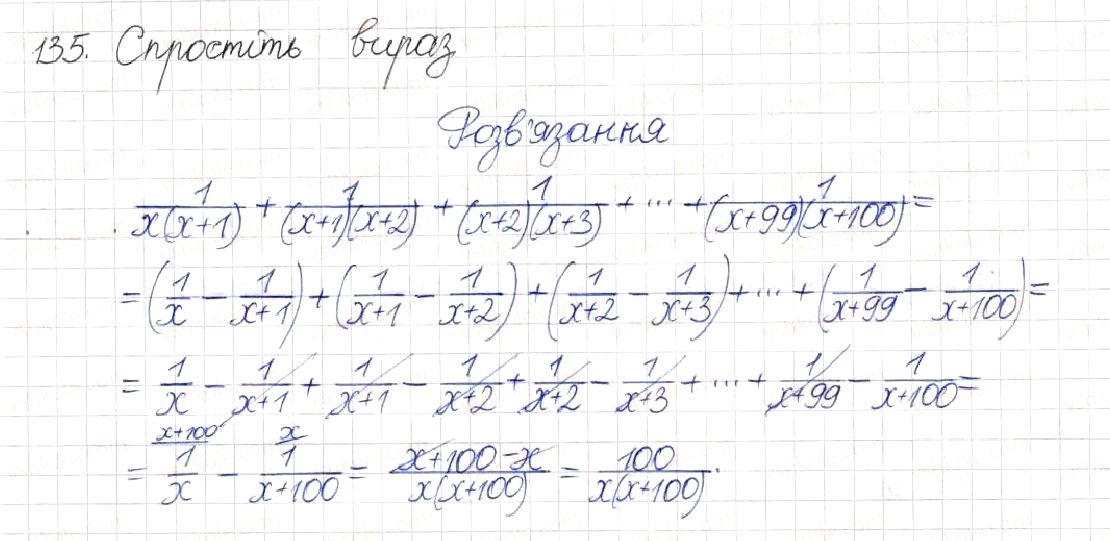 135. Спростіть вираз
Розв'язання
1/(x(x+1)) + 1/((x+1)(x+2)) + 1/((x+2)(x+3)) + ... + 1/((x+99)(x+100)) =
= (1/x - 1/(x+1)) + (1/(x+1) - 1/(x+2)) + (1/(x+2) - 1/(x+3)) + ... + (1/(x+99) - 1/(x+100)) =
= 1/x - 1/(x+1) + 1/(x+1) - 1/(x+2) + 1/(x+2) - 1/(x+3) + ... + 1/(x+99) - 1/(x+100) =
x+100 x
= 1/x - 1/(x+100) = (x+100-x)/(x(x+100)) = 100/(x(x+100)).